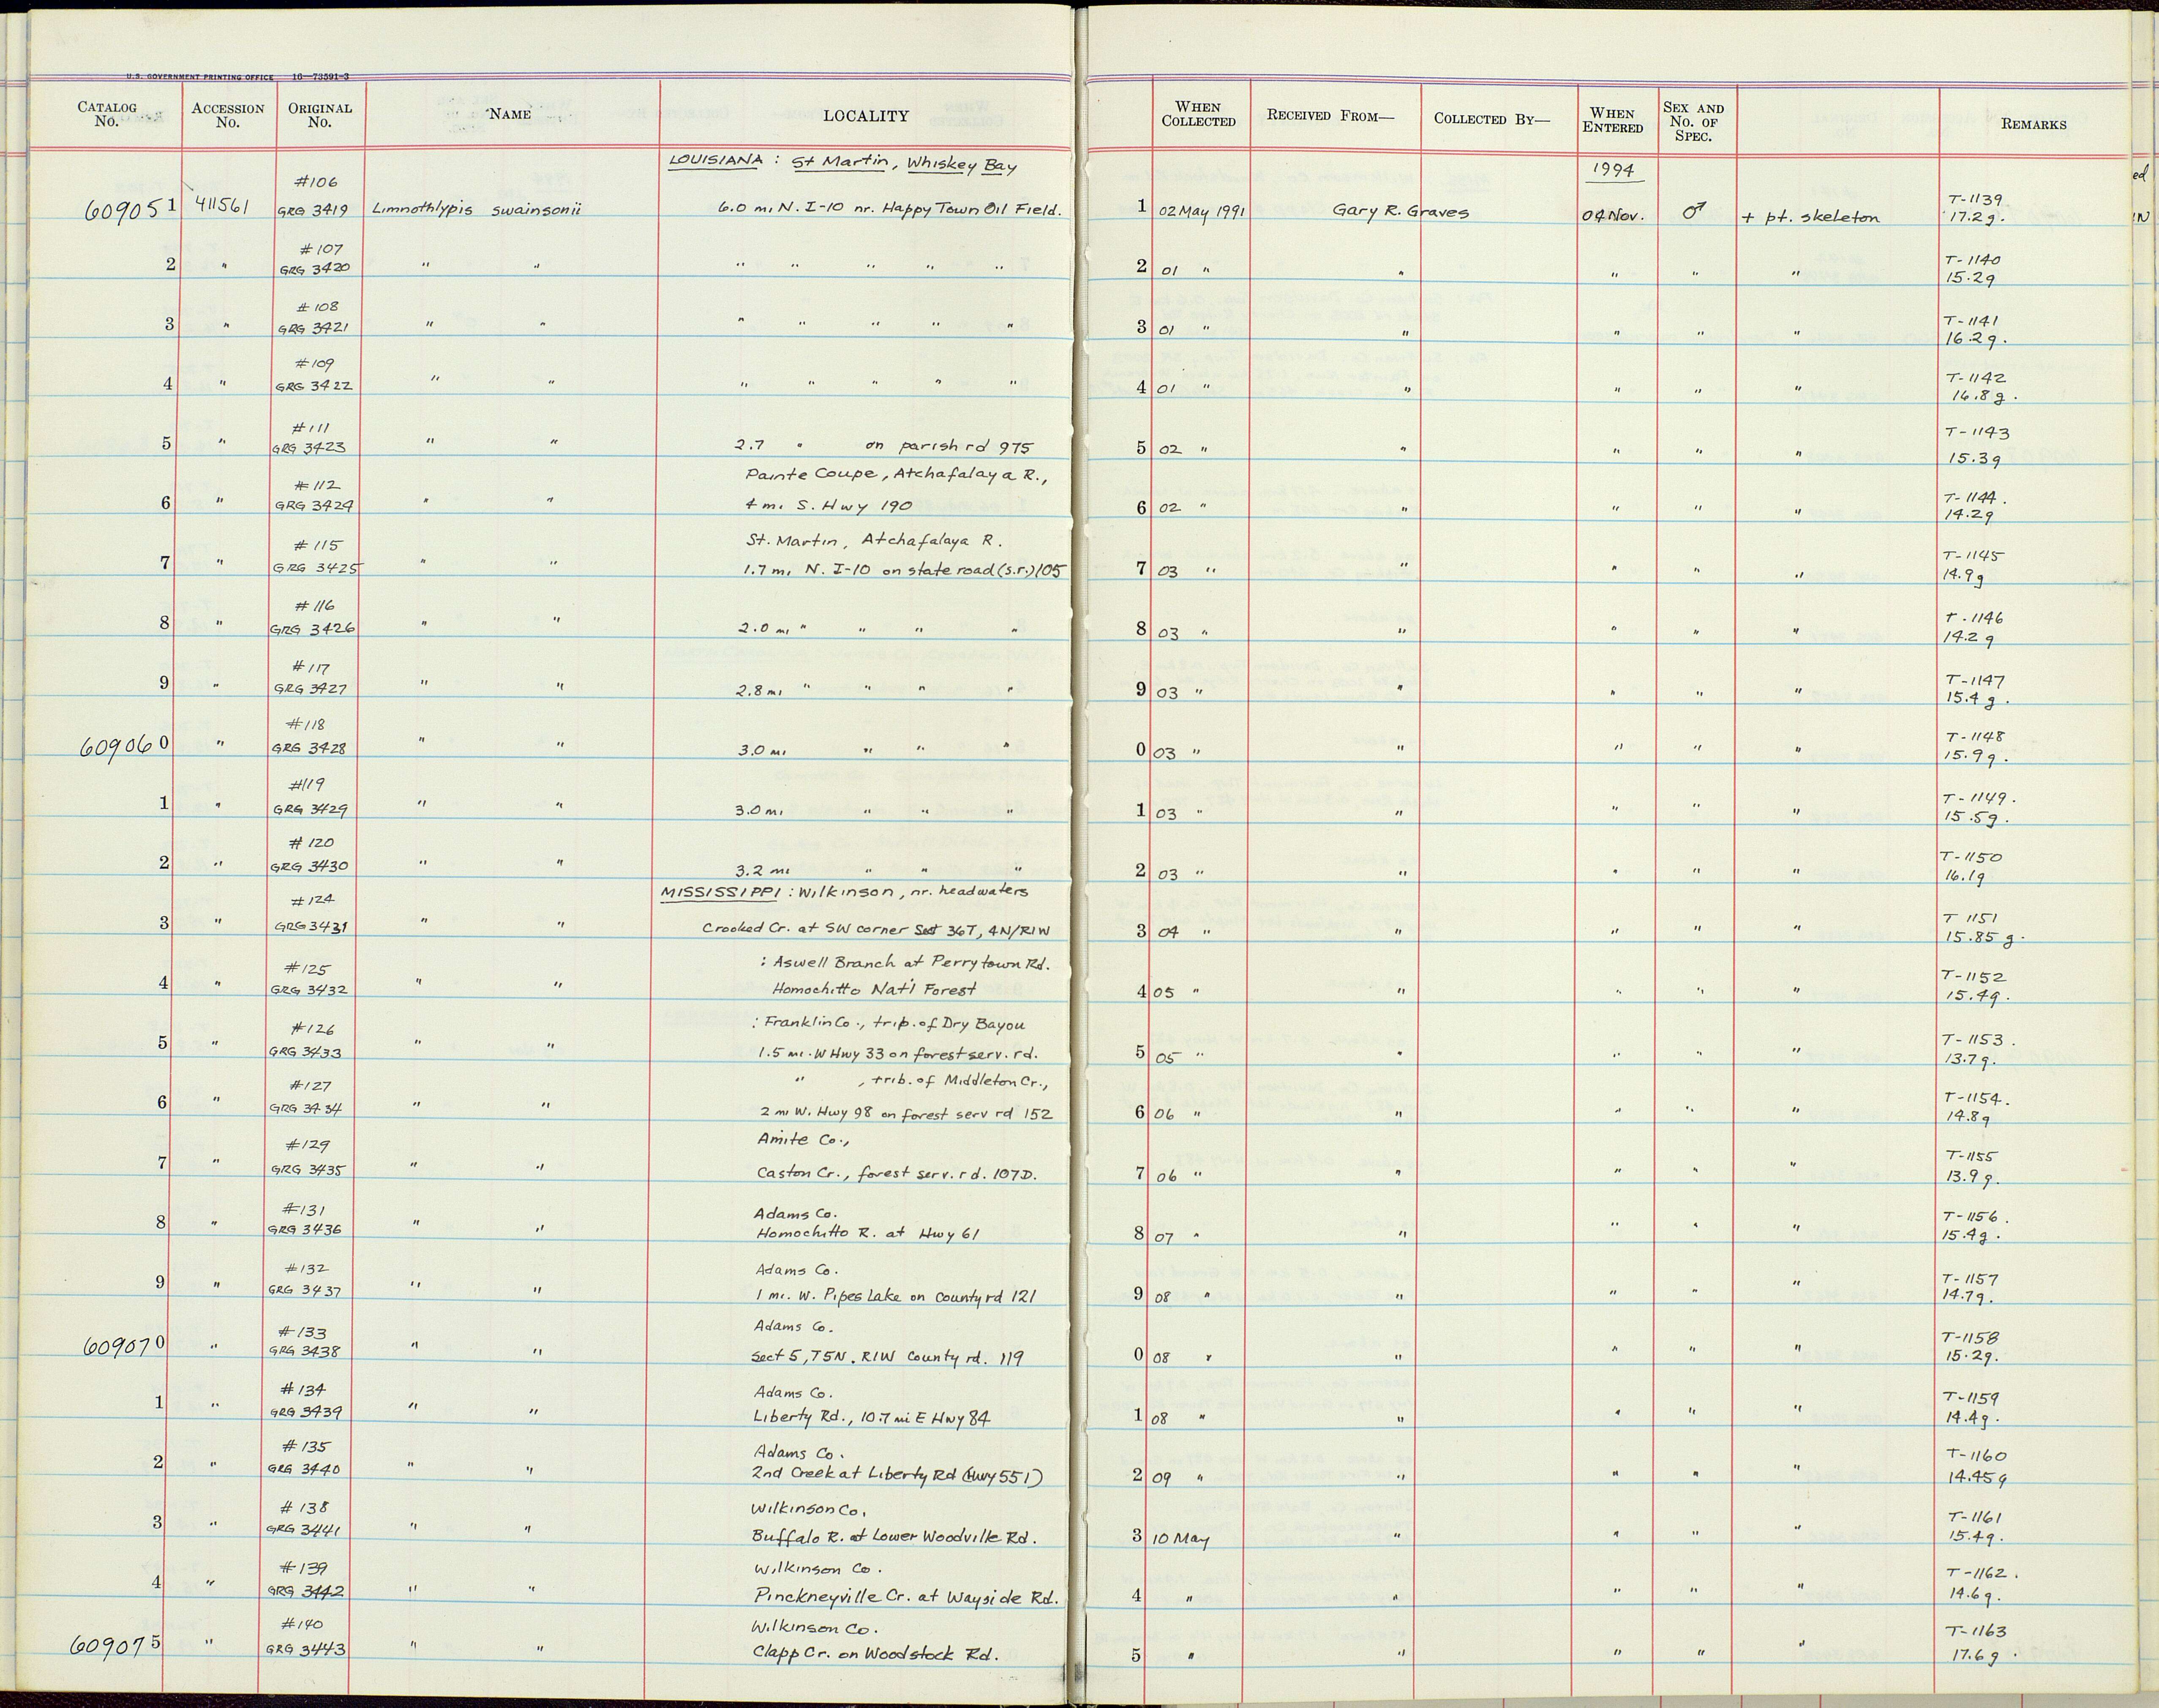 U.S. GOVERNMENT PRINTING OFFICE 16—73591-3
CATALOG No. ACCESSION No. ORIGINAL No. NAME LOCALITY WHEN COLLECTED RECEIVED FROM— COLLECTED BY— WHEN ENTERED SEX AND No. OF SPEC. REMARKS
LOUISIANA : St Martin, Whiskey Bay 1994
#106 T-1139
609051 411561 GRG 3419 Limnothlypis swainsonii 6.0 mi N. I-10 nr. Happy Town Oil Field. 1 02 May 1991 Gary R. Graves 04 Nov. ♂ + pt. skeleton 17.2g.
#107 T-1140
2 " GRG 3420 " " " " " " " 2 01 " " " " " 15.2g
#108 T-1141
3 " GRG 3421 " " " " " " " 3 01 " " " " " 16.2g.
#109 T-1142
4 " GRG 3422 " " " " " " " 4 01 " " " " " 16.8g.
#111 T-1143
5 " GRG 3423 " " 2.7 " on parish rd 975 5 02 " " " " " 15.3g
#112 Pointe Coupe, Atchafalaya R., T-1144.
6 " GRG 3424 " " 4 mi S. Hwy 190 6 02 " " " " " 14.2g
#115 St. Martin, Atchafalaya R. T-1145
7 " GRG 3425 " " 1.7 mi N. I-10 on state road (s.r.) 105 7 03 " " " " " 14.9g
#116 T-1146
8 " GRG 3426 " " 2.0 mi " " " " 8 03 " " " " " 14.2g
#117 T-1147
9 " GRG 3427 " " 2.8 mi " " " " 9 03 " " " " " 15.4g.
#118 T-1148
609060 " GRG 3428 " " 3.0 mi " " " 0 03 " " " " " 15.9g.
#119 T-1149.
1 " GRG 3429 " " 3.0 mi " " " 1 03 " " " " " 15.5g.
#120 T-1150
2 " GRG 3430 " " 3.2 mi " " " 2 03 " " " " " 16.1g
#124 MISSISSIPPI : Wilkinson, nr. headwaters T 1151
3 " GRG 3431 " " Crooked Cr. at SW corner Sect 36T, 4N/R1W 3 04 " " " " " 15.85 g.
#125 : Aswell Branch at Perrytown Rd. T-1152
4 " GRG 3432 " " Homochitto Nat'l Forest 4 05 " " " " " 15.4g.
#126 : Franklin Co., trib. of Dry Bayou T-1153.
5 " GRG 3433 " " 1.5 mi. W Hwy 33 on forest serv. rd. 5 05 " " " " " 13.7g.
#127 " , trib. of Middleton Cr., T-1154.
6 " GRG 3434 " " 2 mi W. Hwy 98 on forest serv rd 152 6 06 " " " " " 14.8g
#129 Amite Co., T-1155
7 " GRG 3435 " " Caston Cr., forest serv. rd. 107D. 7 06 " " " " " 13.9g.
#131 Adams Co. T-1156.
8 " GRG 3436 " " Homochitto R. at Hwy 61 8 07 " " " " " 15.4g.
#132 Adams Co. T-1157
9 " GRG 3437 " " 1 mi. W. Pipes Lake on county rd 121 9 08 " " " " " 14.7g.
#133 Adams Co. T-1158
609070 " GRG 3438 " " Sect 5, T5N. R1W County rd. 119 0 08 " " " " " 15.2g.
#134 Adams Co. T-1159
1 " GRG 3439 " " Liberty Rd., 10.7 mi E Hwy 84 1 08 " " " " " 14.4g.
#135 Adams Co. T-1160
2 " GRG 3440 " " 2nd Creek at Liberty Rd (Hwy 551) 2 09 " " " " " 14.45g
#138 Wilkinson Co. T-1161
3 " GRG 3441 " " Buffalo R. at Lower Woodville Rd. 3 10 May " " " " 15.4g.
#139 Wilkinson Co. T-1162.
4 " GRG 3442 " " Pinckneyville Cr. at Wayside Rd. 4 " " " " " 14.6g.
#140 Wilkinson Co. T-1163
609075 " GRG 3443 " " Clapp Cr. on Woodstock Rd. 5 " " " " " 17.6g.